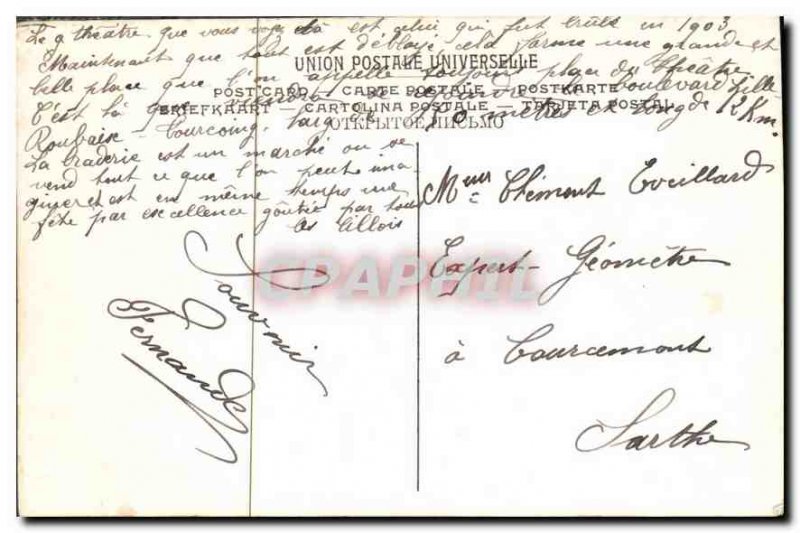 Le théâtre que vous voyez là est celui qui fut brûlé en 1903
Maintenant que tout est déblayé, cela forme une grande et
UNION POSTALE UNIVERSELLE
belle place que l'on appelle toujours place du théâtre
POST CARD — CARTE POSTALE — POSTKARTE
C'est là que boulevard Lille
BRIEFKAART — CARTOLINA POSTALE — TARJETA POSTAL
Roubaix - Tourcoing, large de 50 mètres et long de 12 Km.
ОТКРЫТОЕ ПИСЬМО
La braderie est un marché ou se
vend tout ce que l'on peut ima
giner et est en même temps une
fête par excellence goûtée par tous
les lillois
Souvenir
Fernande
Mme Clément Eveillard
Expert-Géomètre
à Courcemont
Sarthe
CPAPHIL